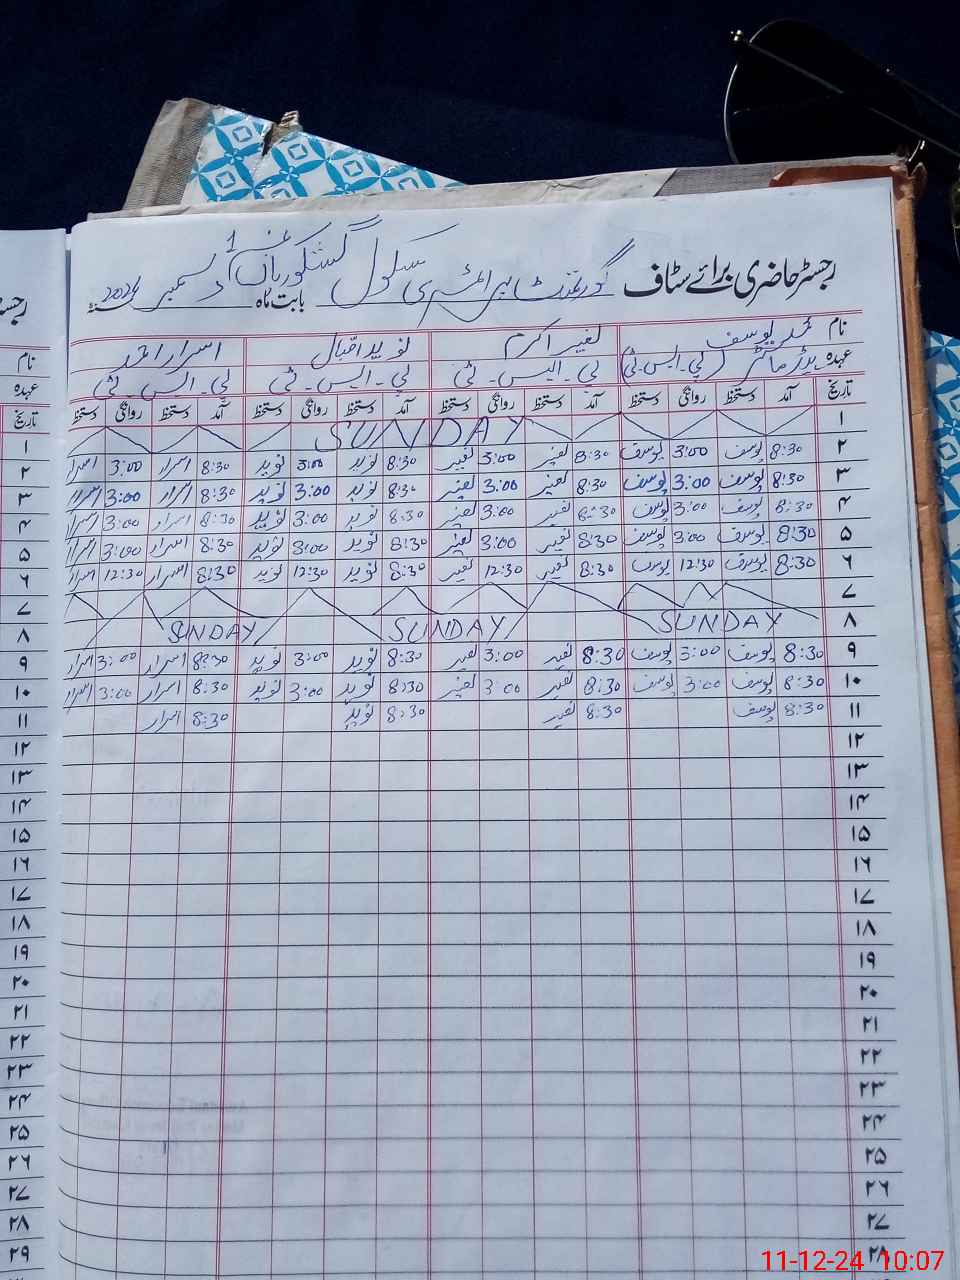 رجسٹر حاضری برائے سٹاف گورنمنٹ پرائمری سکول گشکوریاں نمبر 1 بابت ماہ دسمبر 2024
نام محمد یوسف اکرم نوید اقبال اسرار احمد
عہدہ ہیڈ ماسٹر (پی۔ایس۔ٹی) پی۔ایس۔ٹی پی۔ایس۔ٹی پی۔ایس۔ٹی
تاریخ آمد دستخط روانگی دستخط آمد دستخط روانگی دستخط آمد دستخط روانگی دستخط آمد دستخط روانگی دستخط
۱ SUNDAY
۲ 8:30 یوسف 3:00 یوسف 8:30 3:00 8:30 نوید 3:00 نوید 8:30 اسرار 3:00 اسرار
۳ 8:30 یوسف 3:00 یوسف 8:30 3:00 8:30 نوید 3:00 نوید 8:30 اسرار 3:00 اسرار
۴ 8:30 یوسف 3:00 یوسف 8:30 3:00 8:30 نوید 3:00 نوید 8:30 اسرار 3:00 اسرار
۵ 8:30 یوسف 3:00 یوسف 8:30 3:00 8:30 نوید 3:00 نوید 8:30 اسرار 3:00 اسرار
۶ 8:30 یوسف 12:30 یوسف 8:30 12:30 8:30 نوید 12:30 نوید 8:30 اسرار 12:30 اسرار
۷
۸ SUNDAY SUNDAY SUNDAY
۹ 8:30 یوسف 3:00 یوسف 8:30 3:00 8:30 نوید 3:00 نوید 8:30 اسرار 3:00 اسرار
۱۰ 8:30 یوسف 3:00 یوسف 8:30 3:00 8:30 نوید 3:00 نوید 8:30 اسرار 3:00 اسرار
۱۱ 8:30 یوسف 8:30 8:30 نوید 8:30 اسرار
۱۲
۱۳
۱۴
۱۵
۱۶
۱۷
۱۸
۱۹
۲۰
۲۱
۲۲
۲۳
۲۴
۲۵
۲۶
۲۷
۲۸
نام
عہدہ
تاریخ
۱
۲
۳
۴
۵
۶
۷
۸
۹
۱۰
۱۱
۱۲
۱۳
۱۴
۱۵
۱۶
۱۷
۱۸
۱۹
۲۰
۲۱
۲۲
۲۳
۲۴
۲۵
۲۶
۲۷
۲۸
۲۹
11-12-24 10:07